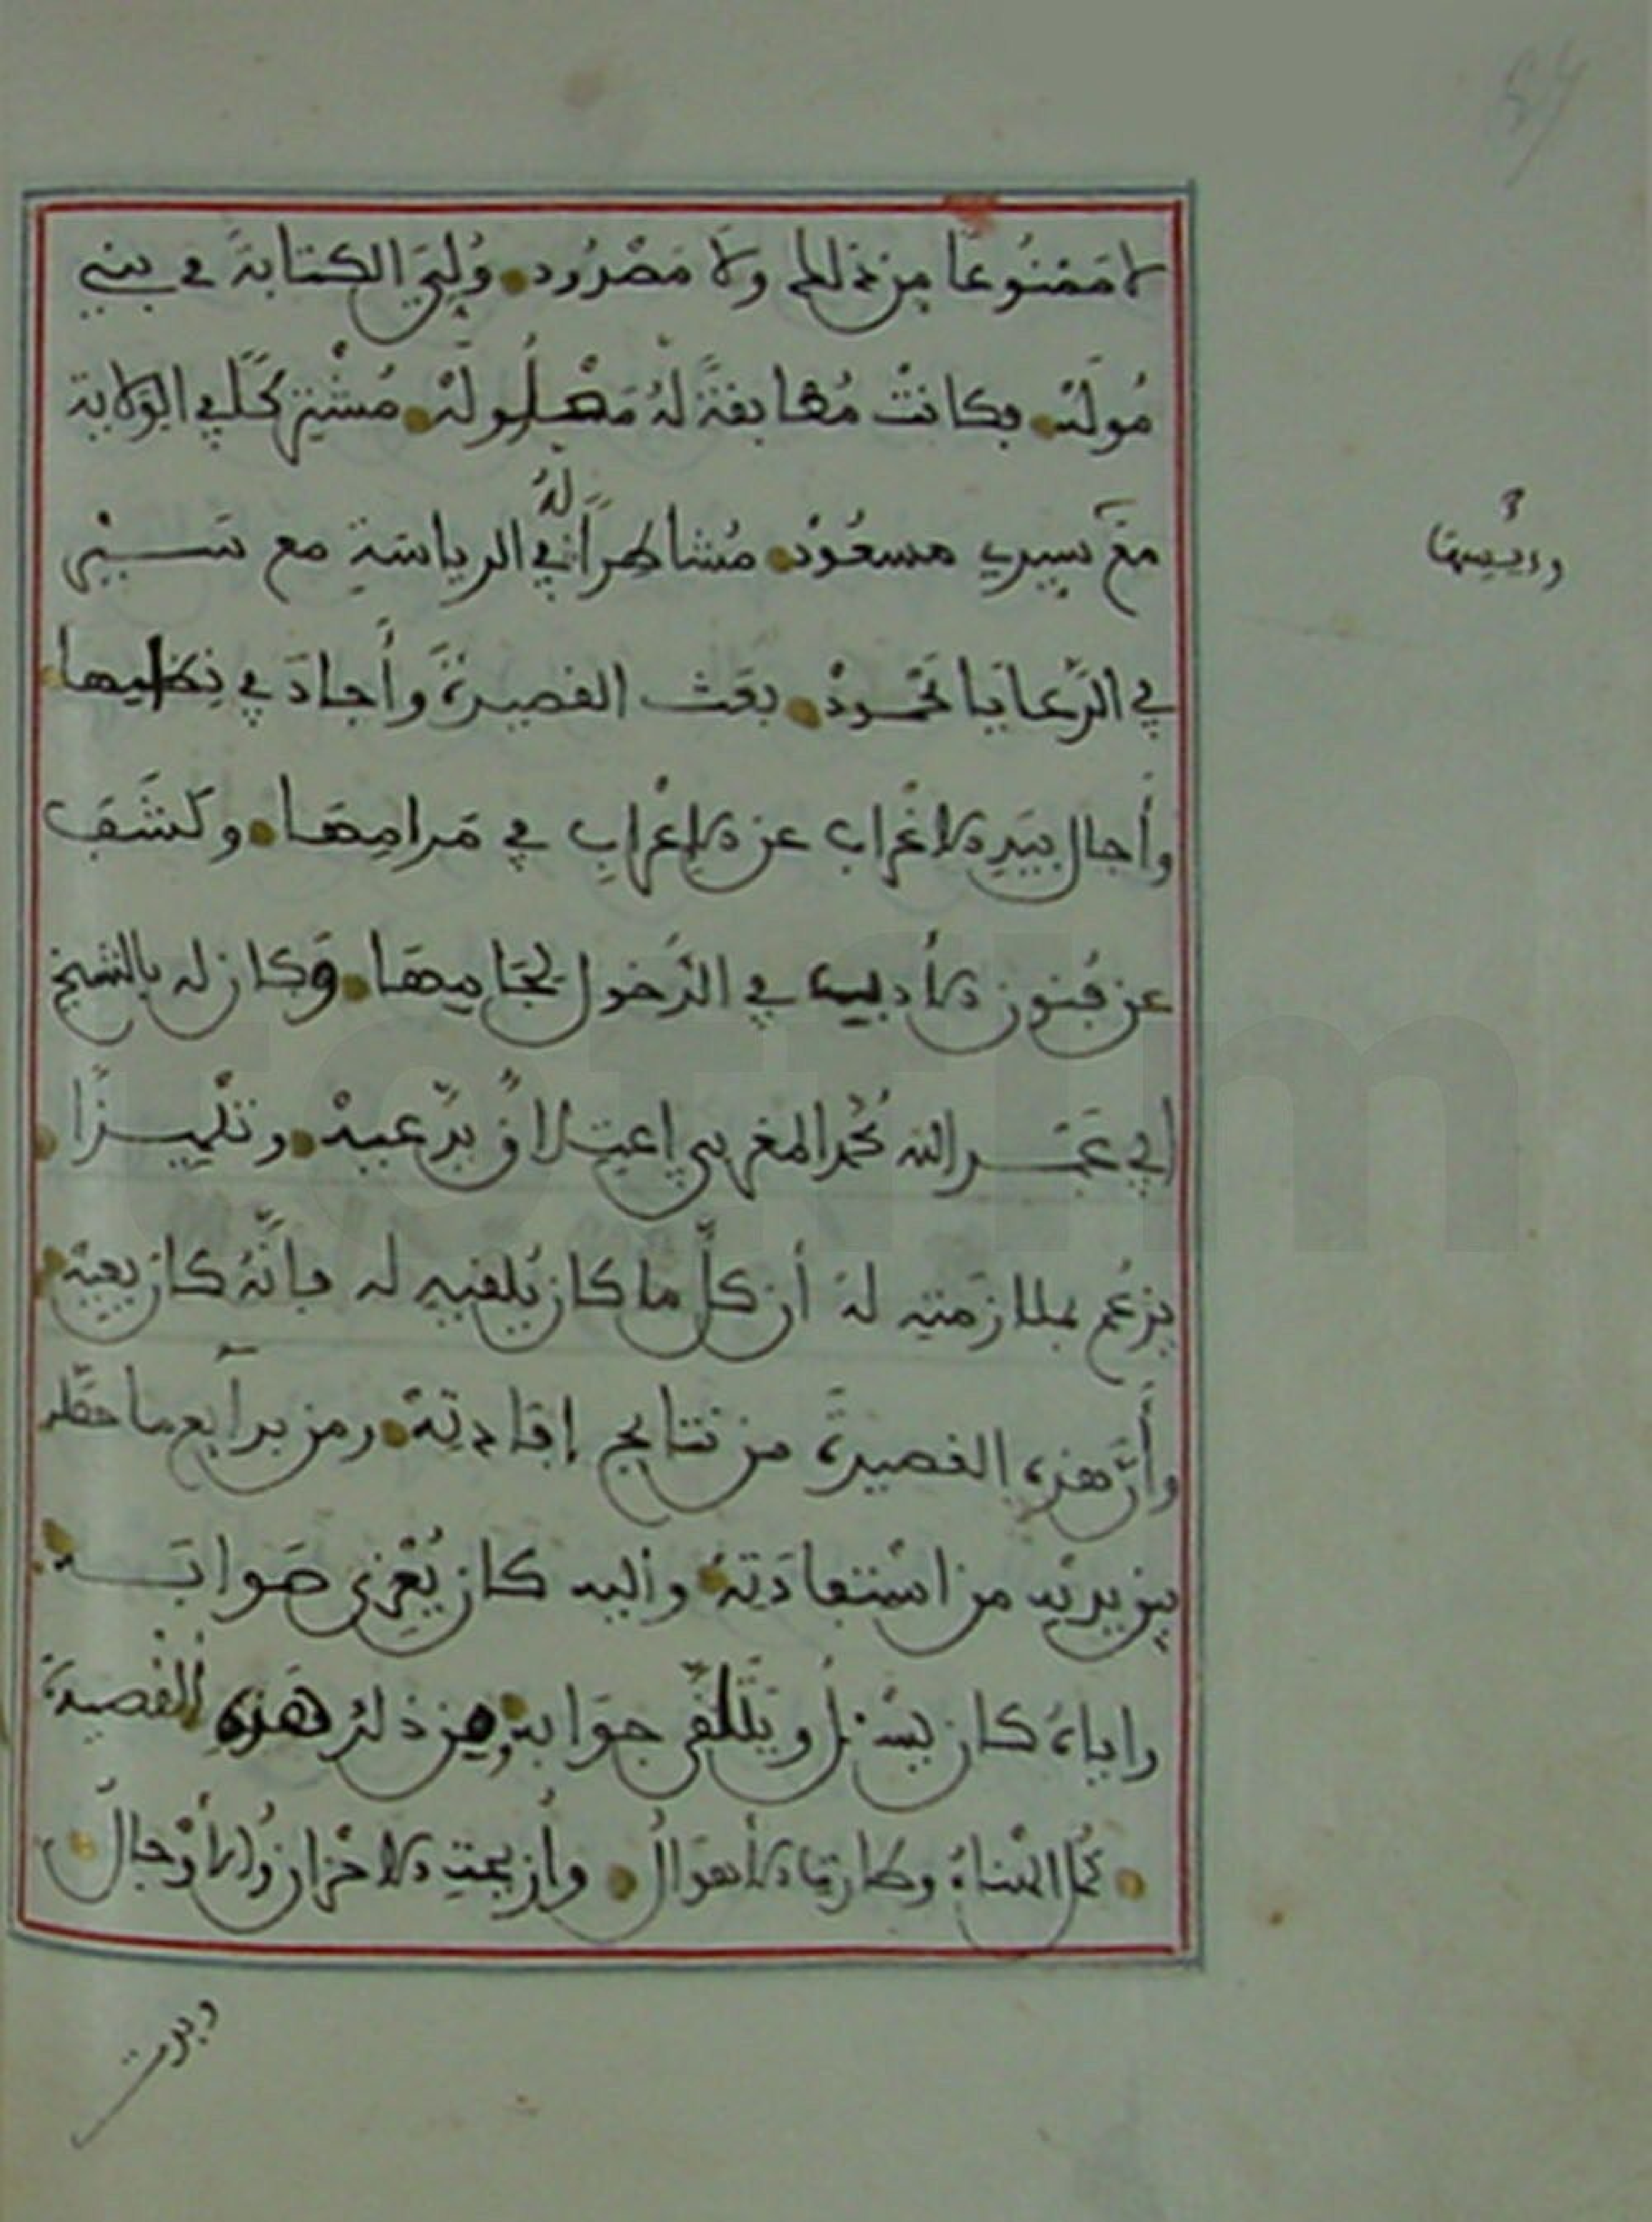 لا ممنوعا من ذلك ولا مصدود وُلِيَ الكتابة في بني
مُولَتْ فكانت مُطابقةً لهُ مَدْلُولَهْ مُشْتركًا في الولاية
معَ سيدي مسعُودْ مُشاطِرًا لهُ في الرياسَةِ مع سيده
في الرّعايا محمودْ بعث القصيدةَ وأجادَ في نظامها
وأجال بيَدِ الاغْراب عن الإعْرابِ في مَرامِهَا وكشَفَ
عن فُنون الأدب في الدّخول لخِتامِهَا وكان له بالشيخ
أبي عَبد الله مُحمد المغربي اعتِلاقٌ يدّعيهْ وتلميذًا
يزعُم بملازمَتِه لهُ أن كلّ ما كان يُلقيه له فإنّهُ كان يعيهْ
وأنّ هذه القصيدةَ من نتايج إفادتِهْ ومن بدآيع ما حصّله
بين يديْه من استفادَتِهْ وإليه كان يُعْزى صَوابهْ
واياهُ كان يسْئل ويتَلقّى جوَابهْ فمن ذلك هذِه القصيدةُ
عُمُّ العناءُ وطارت الأهوالُ وازيحتِ الاحْزانُ والأوْجالُ
وبدت
ورييسها